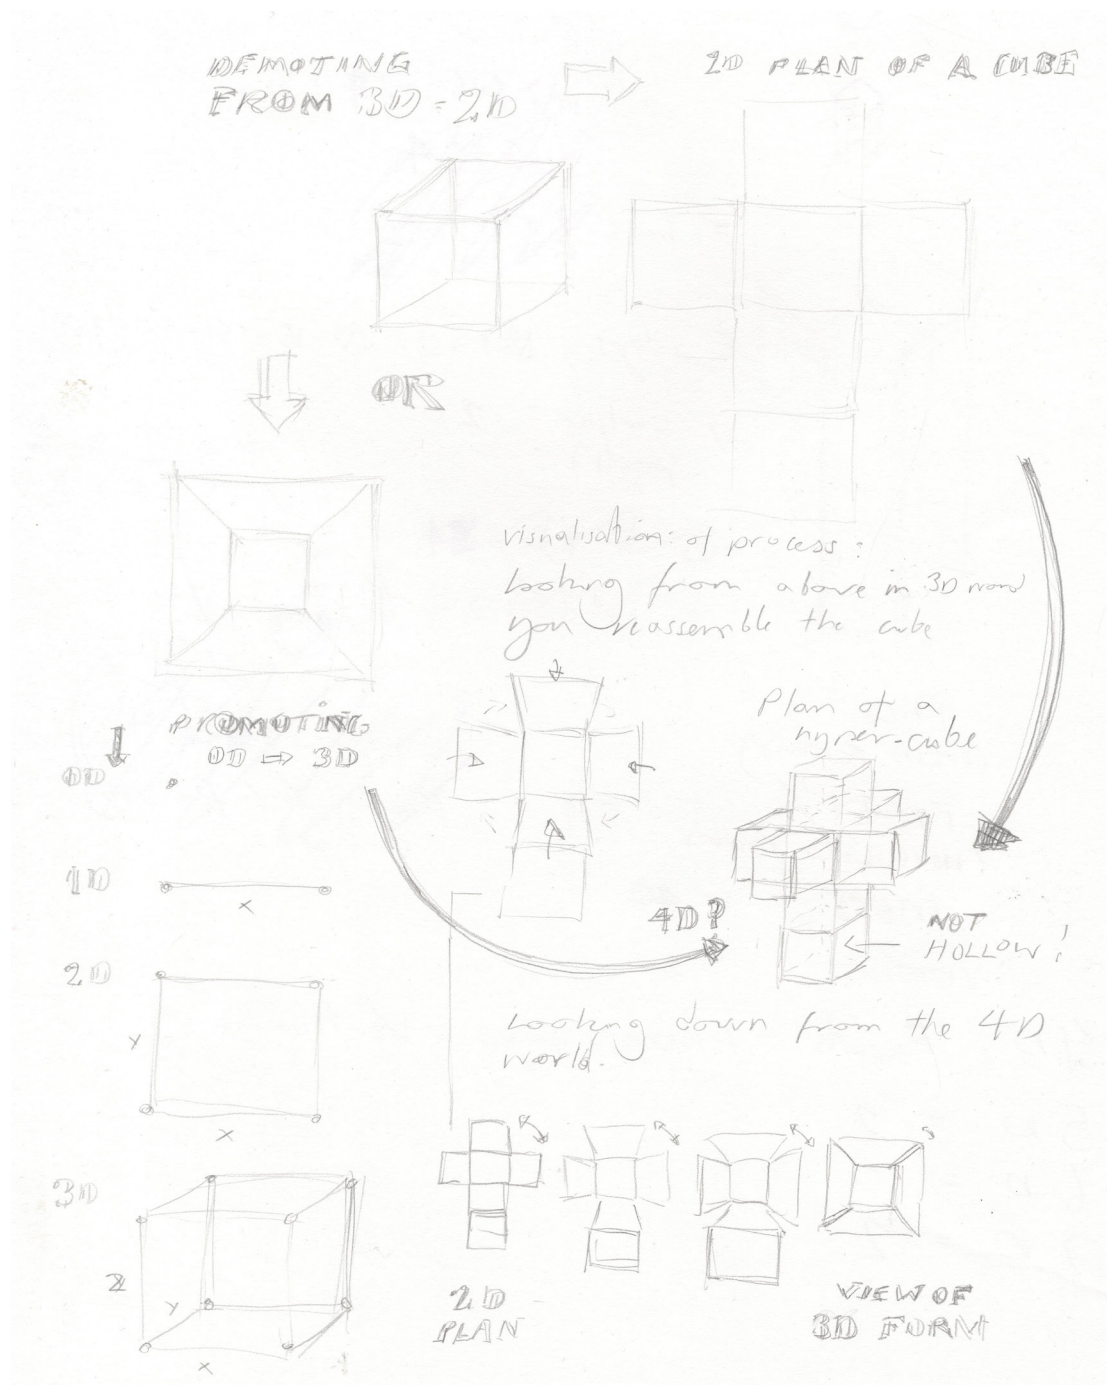 DEMOTING
FROM 3D = 2D
2D PLAN OF A CUBE
OR
visualisation: of process:
Looking from above in 3D now
you reassemble the cube
PROMOTING
0D ⇒ 3D
Plan of a
hyper-cube
0D
1D
x
4D?
NOT
HOLLOW!
2D
y
x
Looking down from the 4D
world.
3D
z
y
x
2D
PLAN
VIEW OF
3D FORM